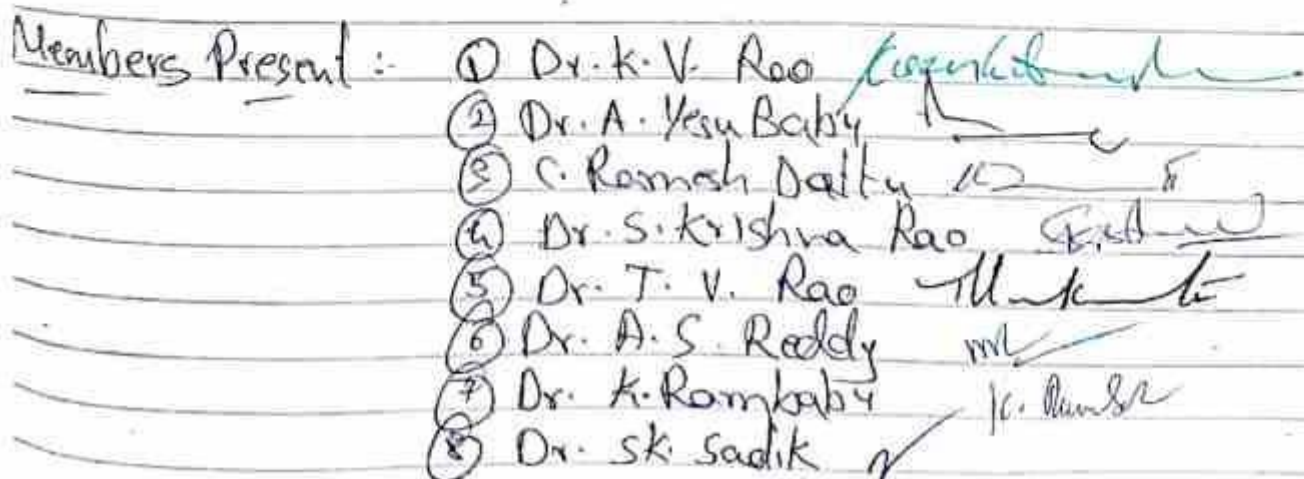 Members Present :- ① Dr. K. V. Rao
② Dr. A. Yesu Baby
③ C. Ramesh Dattu
④ Dr. S. Krishna Rao
⑤ Dr. T. V. Rao
⑥ Dr. A. S. Reddy
⑦ Dr. K. Rambaby
⑧ Dr. SK. Sadik